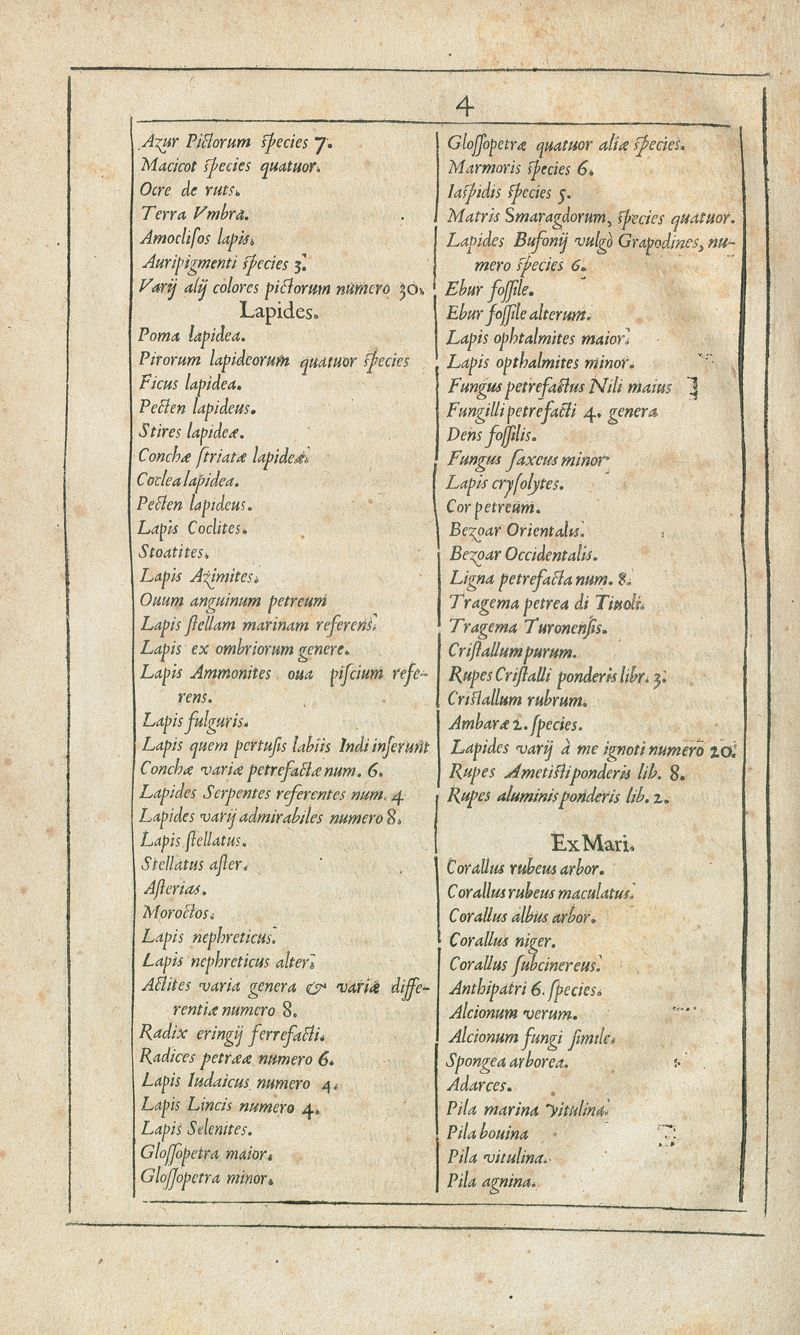 4
Azur Pictorum species 7.
Macicot species quatuor.
Ocre de ruts.
Terra Vmbra.
Amoclisos lapis.
Auripigmenti species 3.
Varij alij colores pictorum numero 30.
Lapides.
Poma lapidea.
Pirorum lapideorum quatuor species
Ficus lapidea.
Pecten lapideus.
Stires lapideæ.
Conchæ ſtriatæ lapideæ.
Coclea lapidea.
Pecten lapideus.
Lapis Coclites.
Stoatites.
Lapis Azimites.
Ouum anguinum petreum
Lapis ſtellam marinam referens.
Lapis ex ombriorum genere.
Lapis Ammonites oua piſcium refe-
rens.
Lapis fulguris.
Lapis quem pertuſis labiis Indi inſerunt
Conchæ variæ petrefactæ num. 6.
Lapides Serpentes referentes num. 4
Lapides varij admirabiles numero 8.
Lapis ſtellatus.
Stellatus aſter.
Aſterias.
Moroctos.
Lapis nephreticus.
Lapis nephreticus alter.
Actites varia genera & variæ diffe-
rentiæ numero 8.
Radix eringij ferrefacti.
Radices petrææ numero 6.
Lapis Iudaicus numero 4.
Lapis Lincis numero 4.
Lapis Selenites.
Gloſſopetra maior.
Gloſſopetra minor.
Gloſſopetræ quatuor aliæ species.
Marmoris species 6.
Iaspidis species 5.
Matris Smaragdorum, species quatuor.
Lapides Bufonij vulgò Grapodines, nu-
mero species 6.
Ebur foſſile.
Ebur foſſile alterum.
Lapis ophtalmites maior.
Lapis opthalmites minor.
Fungus petrefactus Nili maius
Fungilli petrefacti 4. genera
Dens foſſilis.
Fungus ſaxeus minor
Lapis cryſolytes.
Cor petreum.
Bezoar Orientalis.
Bezoar Occidentalis.
Ligna petrefacta num. 8.
Tragema petrea di Tiuoli.
Tragema Turonenſis.
Criſtallum purum.
Rupes Criſtalli ponderis libr. 3.
Criſtallum rubrum.
Ambaræ 2. ſpecies.
Lapides varij à me ignoti numero 20.
Rupes Ametiſti ponderis lib. 8.
Rupes aluminis ponderis lib. 2.
Ex Mari.
Corallus rubeus arbor.
Corallus rubeus maculatus.
Corallus albus arbor.
Corallus niger.
Corallus ſubcinereus.
Anthipatri 6. ſpecies.
Alcionum verum.
Alcionum fungi ſimile.
Spongea arborea.
Adarces.
Pila marina vitulina.
Pila bouina
Pila vitulina.
Pila agnina.